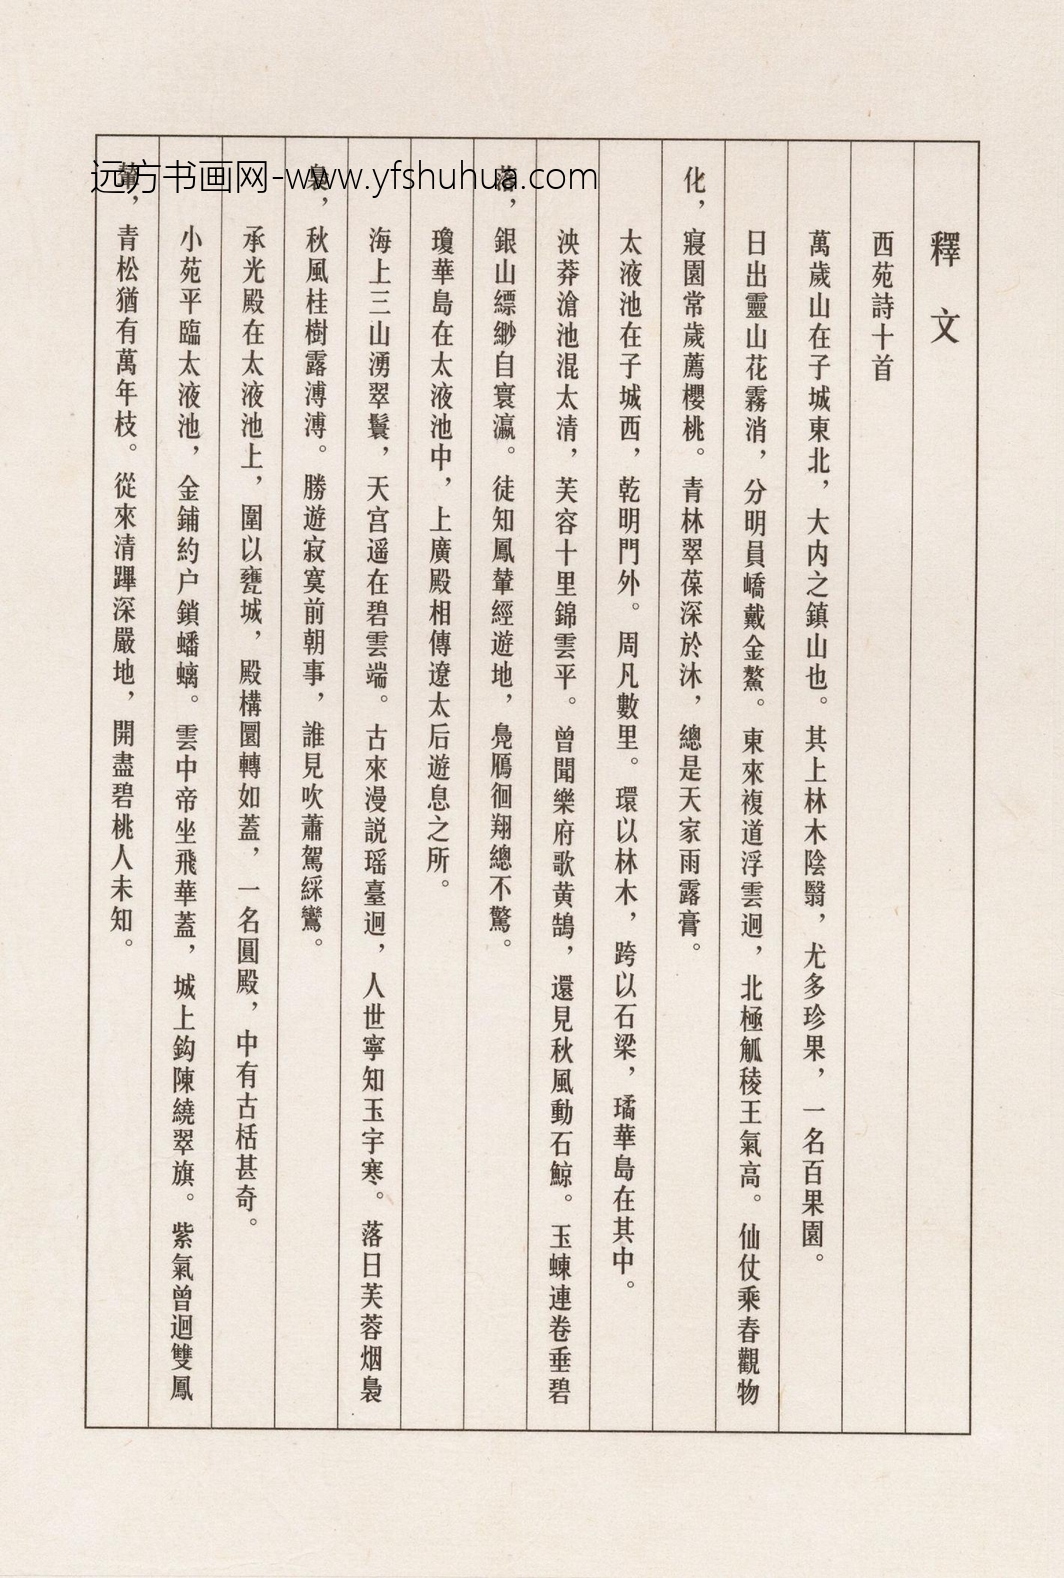 远方书画网-www.yfshuhua.com
釋文
西苑詩十首
萬歲山在子城東北，大内之鎮山也。其上林木陰翳，尤多珍果，一名百果園。
日出靈山花霧消，分明員嶠戴金鰲。東來複道浮雲迥，北極觚稜王氣高。仙仗乘春觀物
化，寢園常歲薦櫻桃。青林翠葆深於沐，總是天家雨露膏。
太液池在子城西，乾明門外。周凡數里。環以林木，跨以石梁，璚華島在其中。
泱莽滄池混太清，芙容十里錦雲平。曾聞樂府歌黄鵠，還見秋風動石鯨。玉蝀連卷垂碧
落，銀山縹緲自寰瀛。徒知鳳輦經遊地，鳧鴈徊翔總不驚。
瓊華島在太液池中，上廣殿相傳遼太后遊息之所。
海上三山湧翠鬟，天宫遥在碧雲端。古來漫説瑶臺迥，人世寧知玉宇寒。落日芙蓉烟裊
裊，秋風桂樹露漙漙。勝遊寂寞前朝事，誰見吹蕭駕綵鸞。
承光殿在太液池上，圍以甕城，殿構圜轉如蓋，一名圓殿，中有古栝甚奇。
小苑平臨太液池，金鋪約户鎖蟠螭。雲中帝坐飛華蓋，城上鈎陳繞翠旗。紫氣曾迴雙鳳
輦，青松猶有萬年枝。從來清蹕深嚴地，開盡碧桃人未知。